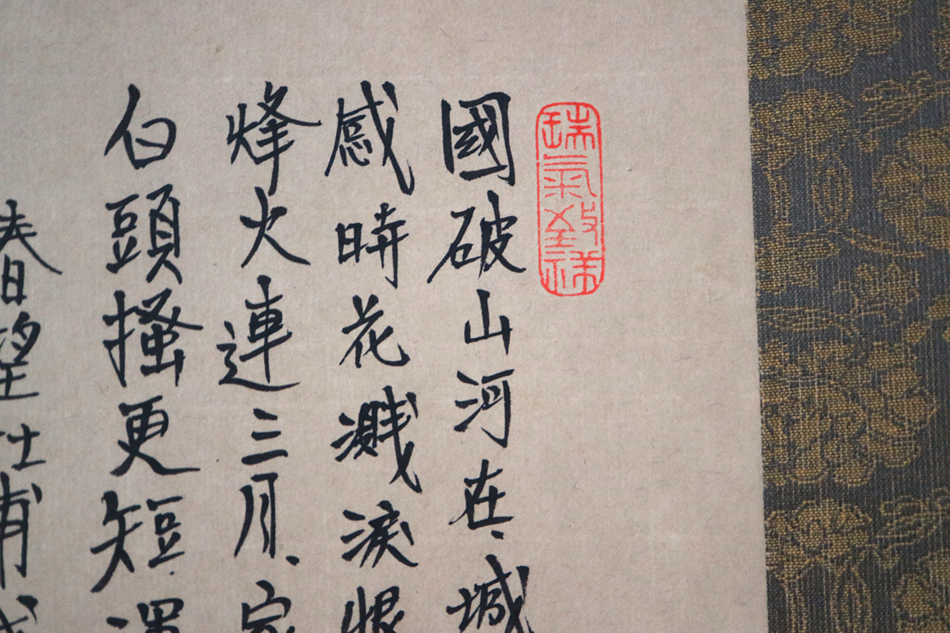 瑞氣致祥
國破山河在、城
感時花濺淚恨
烽火連三月、家
白頭搔更短、渾
春望 杜甫